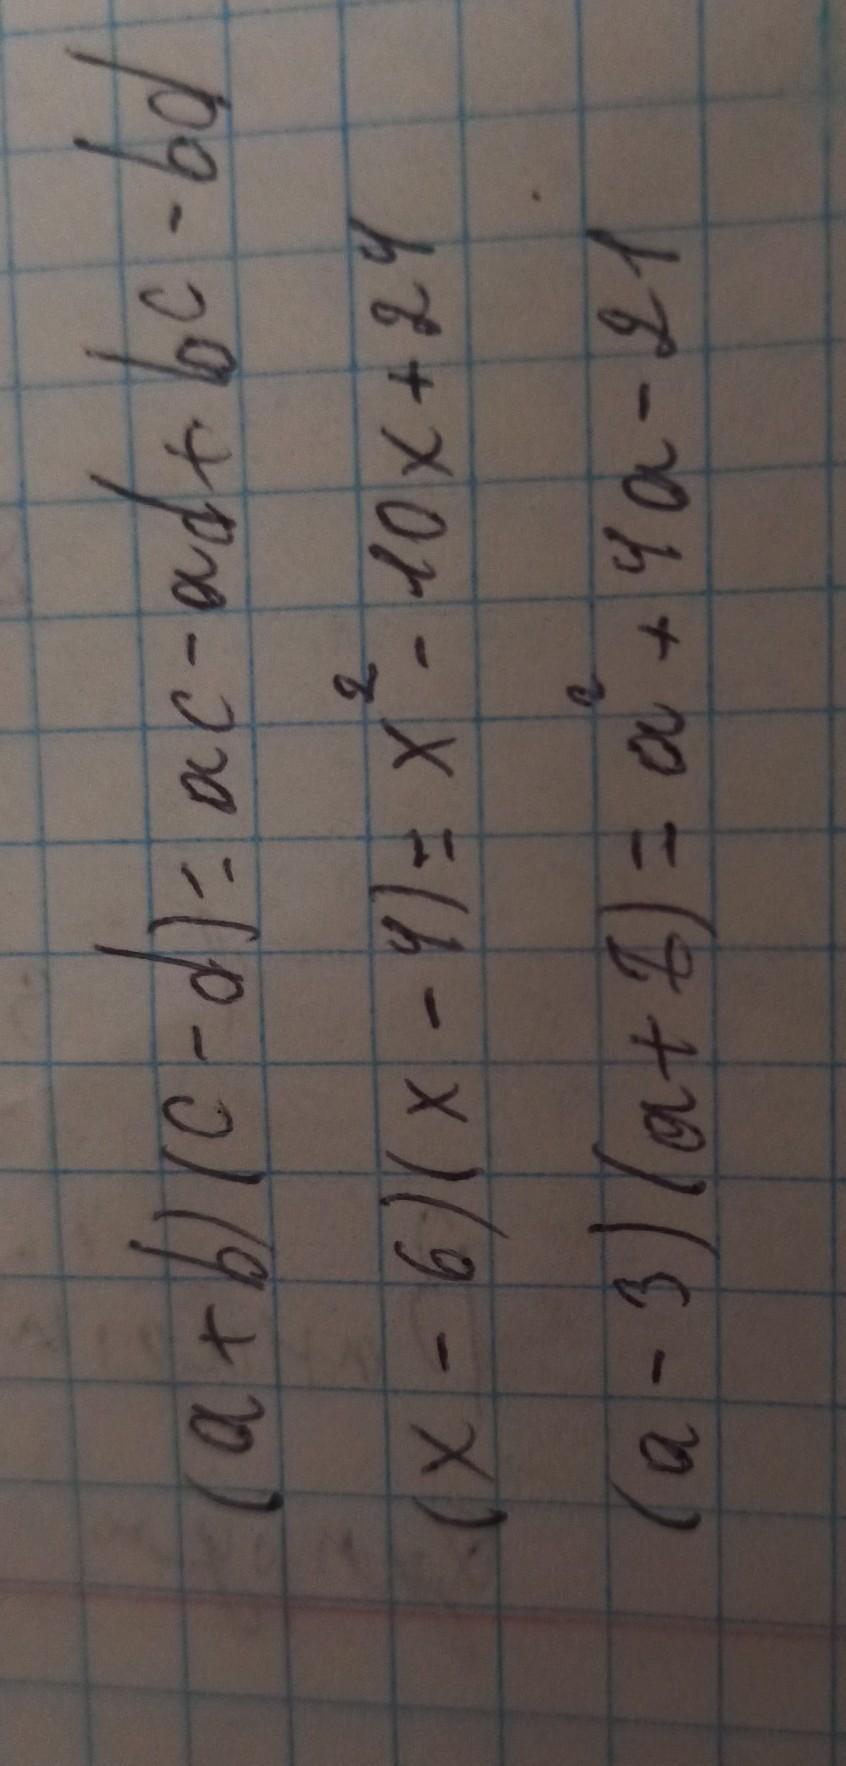 (a+b)(c-d)=ac-ad+bc-bd
(x-6)(x-4)=x²-10x+24
(a-3)(a+7)=a²+4a-21